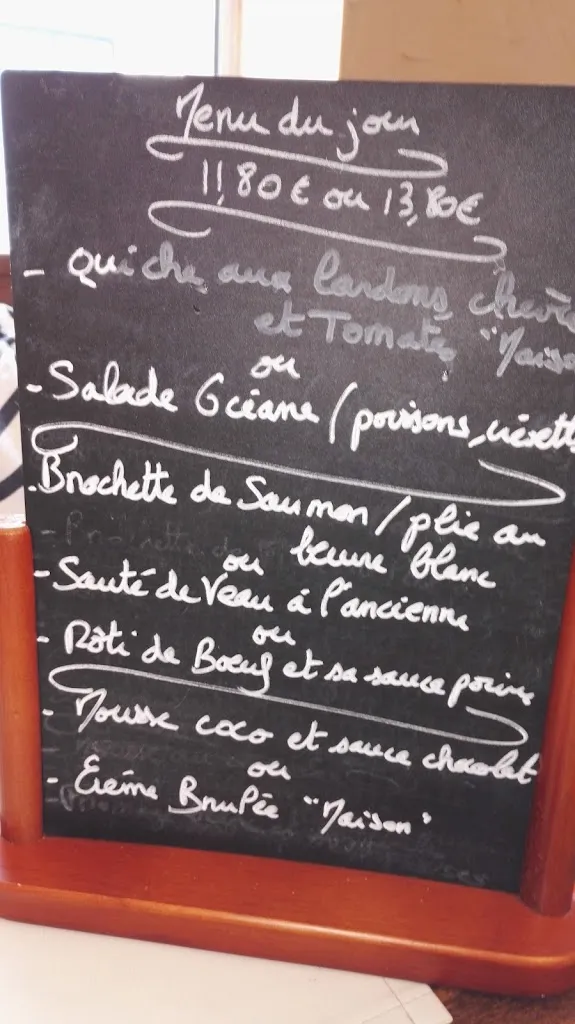 Menu du jour
11,80€ ou 13,80€
- Quiche aux lardons, chèvre
et Tomates "Maison
ou
- Salade Océane / poissons, crevett
- Brochette de Saumon / plie au
beurre blanc
ou
- Sauté de Veau à l'ancienne
ou
- Rôti de Boeuf et sa sauce poivre
- Mousse coco et sauce chocolat
ou
- Crème Brulée "Maison"